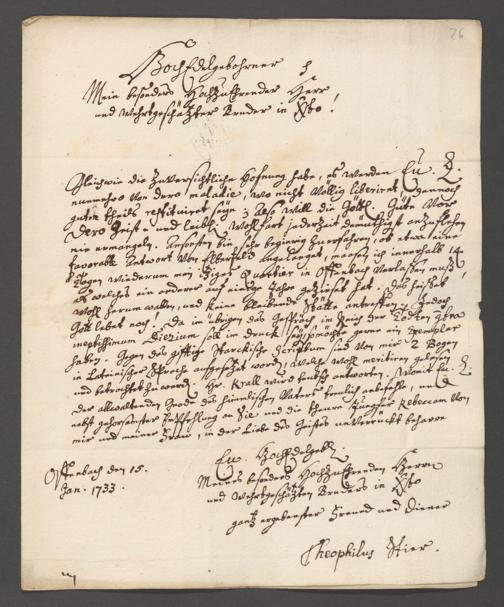 26
HochEdelgebohrner
Mein besonders Hochzuehrender Herr
und Wehrtgeschätzter Bruder in Xsto!
Gleichwie die zuversichtliche Hofnung habe, es werden Eu. H.
nunmehro von dero maladie, wo nicht völlig liberiret, dennoch
guten theils restituiret seyn; also will die Göttl. Güte vor
dero Geist- und leibl. Wohlfart jederzeit demüthigst anzuflehen
nie ermangeln. bin sehr begierig zu erfahren, ob etwa eine
favorable Antwort von Elberfeld angelanget, massen ich innerhalb 14
Tagen wiederum mein Quartier in Offenbach verlassen muß
welches ein anderer auf einige Jahre hat. das heisset
wohl herum wallen, und keine bleibende Stätte antreffen; Jedoch
Gott lebet noch. Da im übrigen das Gespräch im Reich der Todten
Dierium soll in druck seyn, möchte gerne ein Exemplar
haben. Gegen das giftige Scriptum sind von mir 2 Bogen
in Lateinischer Sprache aufgesetzt word, welche wohl meritiren gelesen
und betrachtet zu werd. Hr. Krall wird teutsch antworten. Womit Eu. H.
der allwaltenden Gnade des himmlischen Vaters treulich empfehle, und
nebst gehorsamster Empfehlung an Sie und die theure Jungfer Rebeccam von
mir und meiner Frau, in der Liebe des Geistes unverruckt beharre
Eu. HochEdelgeb.
Offenbach den 15.
Jan. 1733.
Meines besonders Hochzuehrenden Herrn
und Wehrtgeschätzten Bruders in Xsto
gantz ergebenster Freund und Diener
Theophilus Stier.